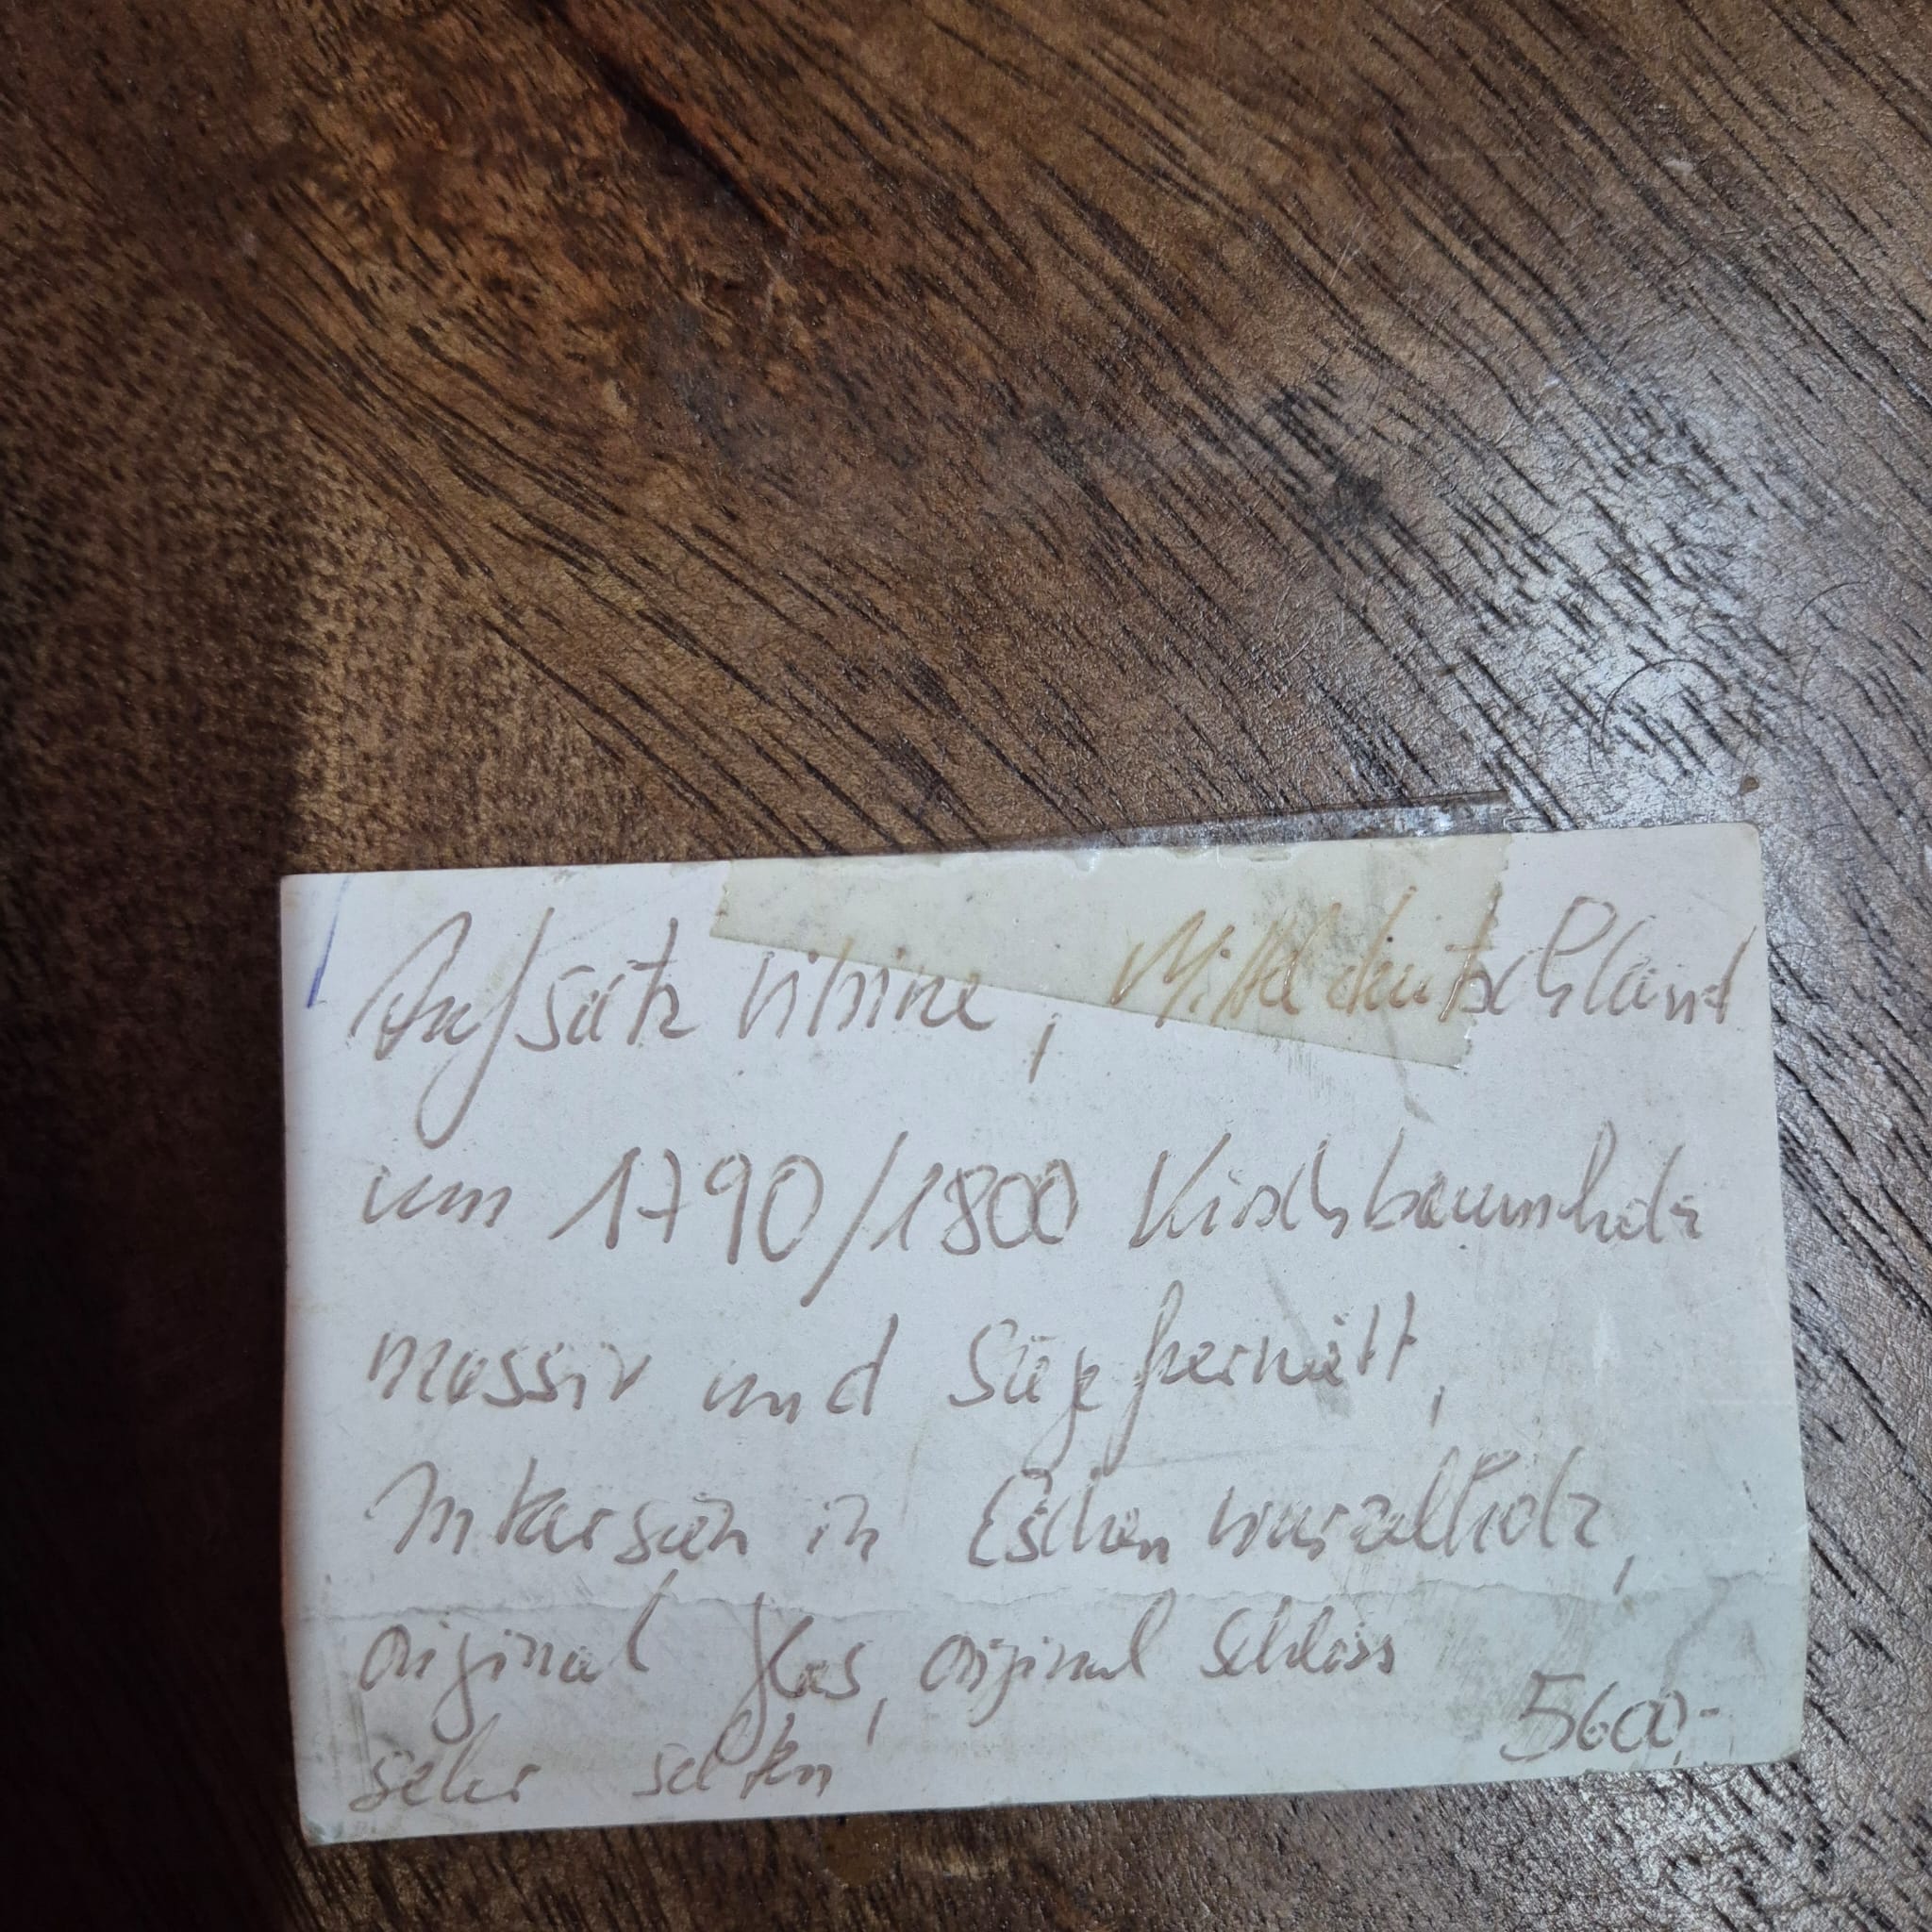 Aufsatz Vitrine, Mitteldeutschland
um 1790/1800 Kirschbaumholz
massiv und Sägefurniert,
Intarsien in Eschenwurzelholz,
original Glas, original Schloss
sehr selten 5600,-